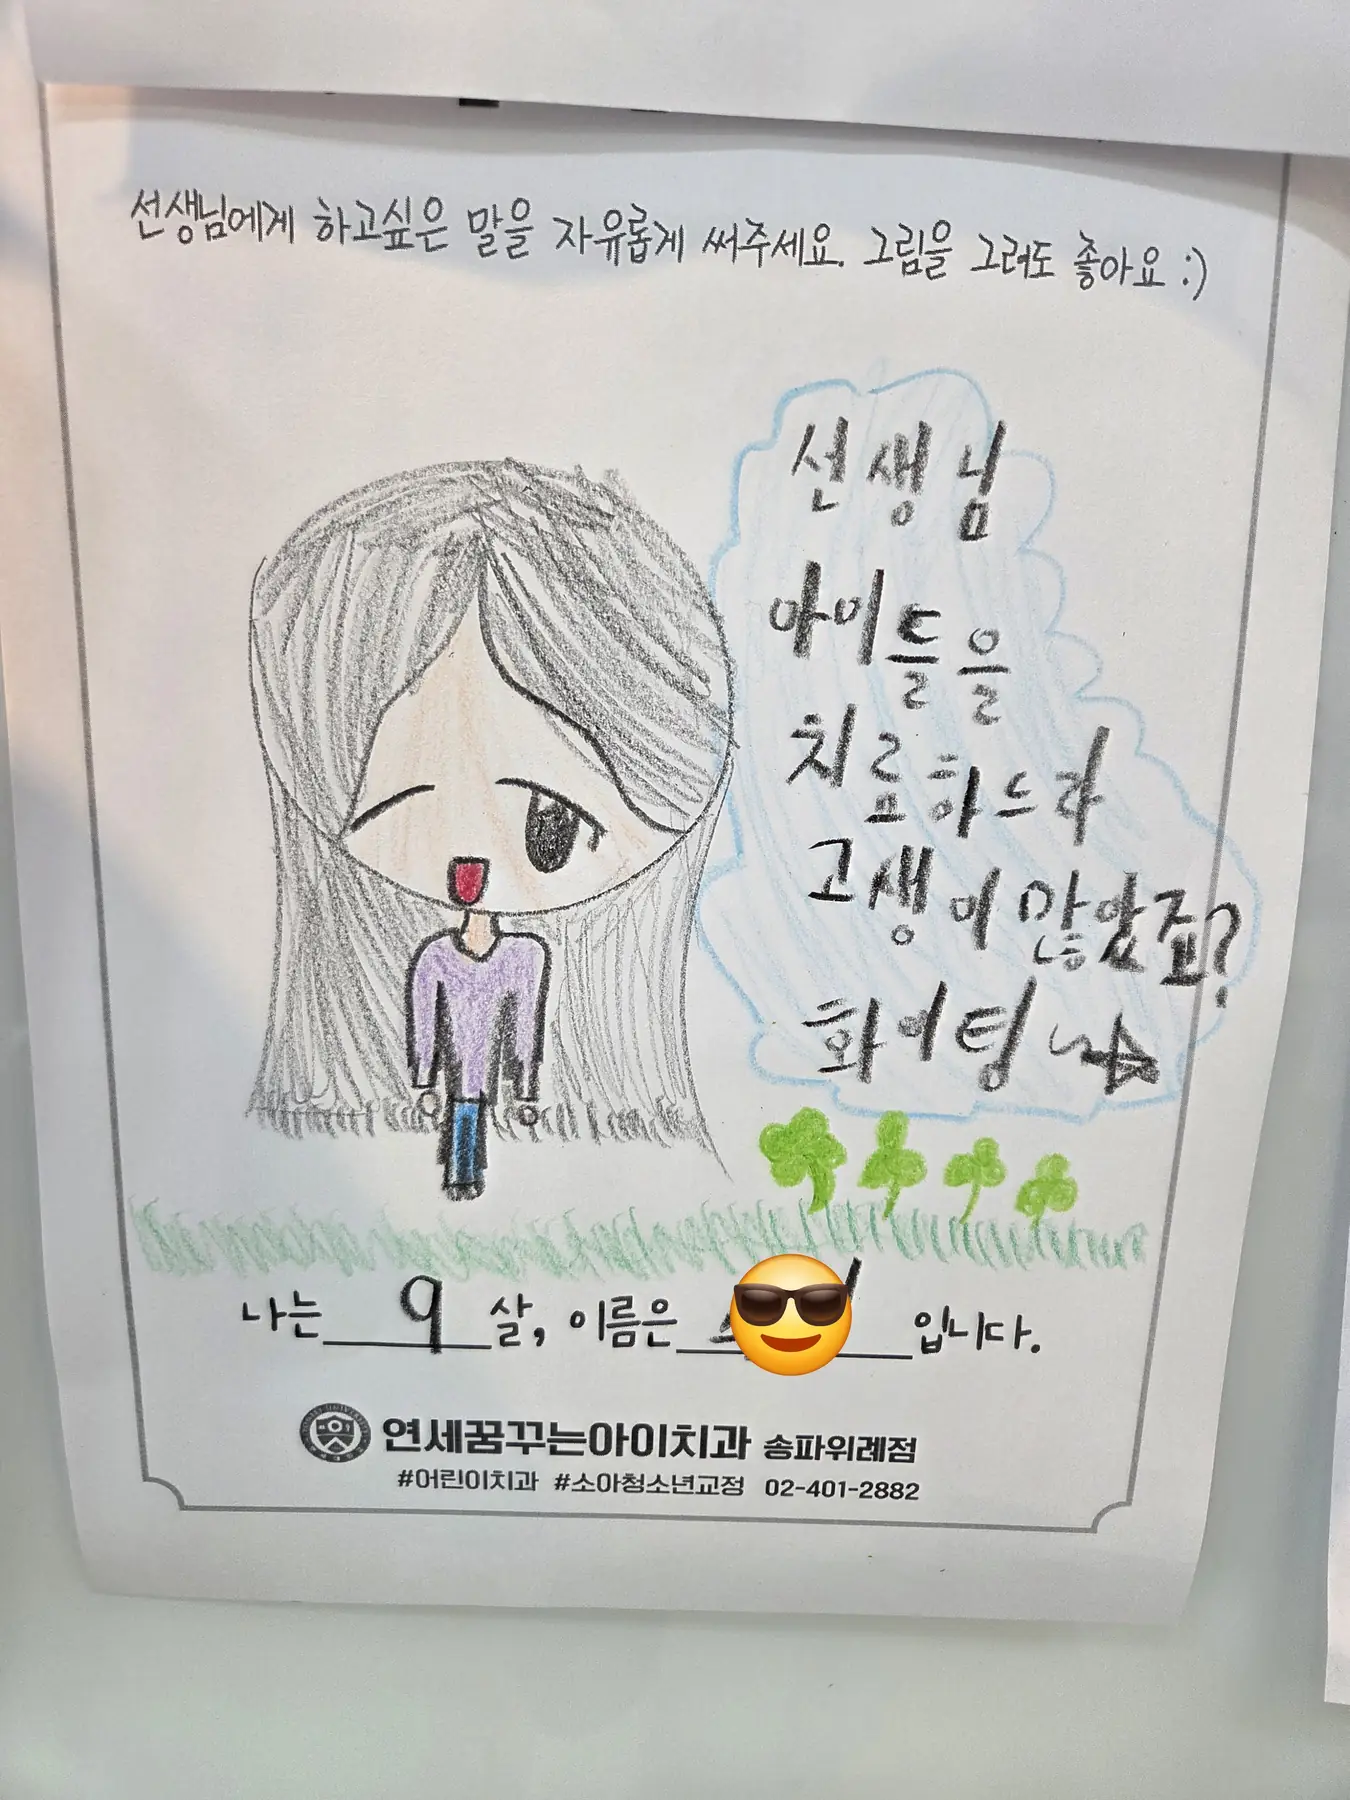 선생님에게 하고싶은 말을 자유롭게 써주세요. 그림을 그려도 좋아요 :)
선생님
아이들을
치료하느라
고생이 많았죠?
화이팅
나는 9 살, 이름은 입니다.
연세꿈꾸는아이치과 송파위례점
#어린이치과 #소아청소년교정 02-401-2882